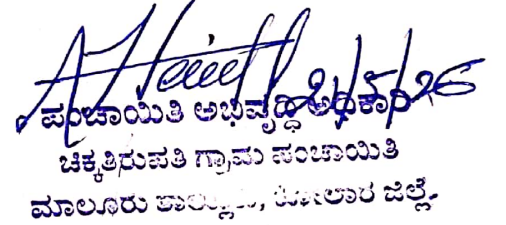 21/5/26
ಪಂಚಾಯಿತಿ ಅಭಿವೃದ್ಧಿ ಅಧಿಕಾರಿ
ಚಿಕ್ಕತಿರುಪತಿ ಗ್ರಾಮ ಪಂಚಾಯಿತಿ
ಮಾಲೂರು ತಾಲ್ಲೂಕು, ಕೋಲಾರ ಜಿಲ್ಲೆ.